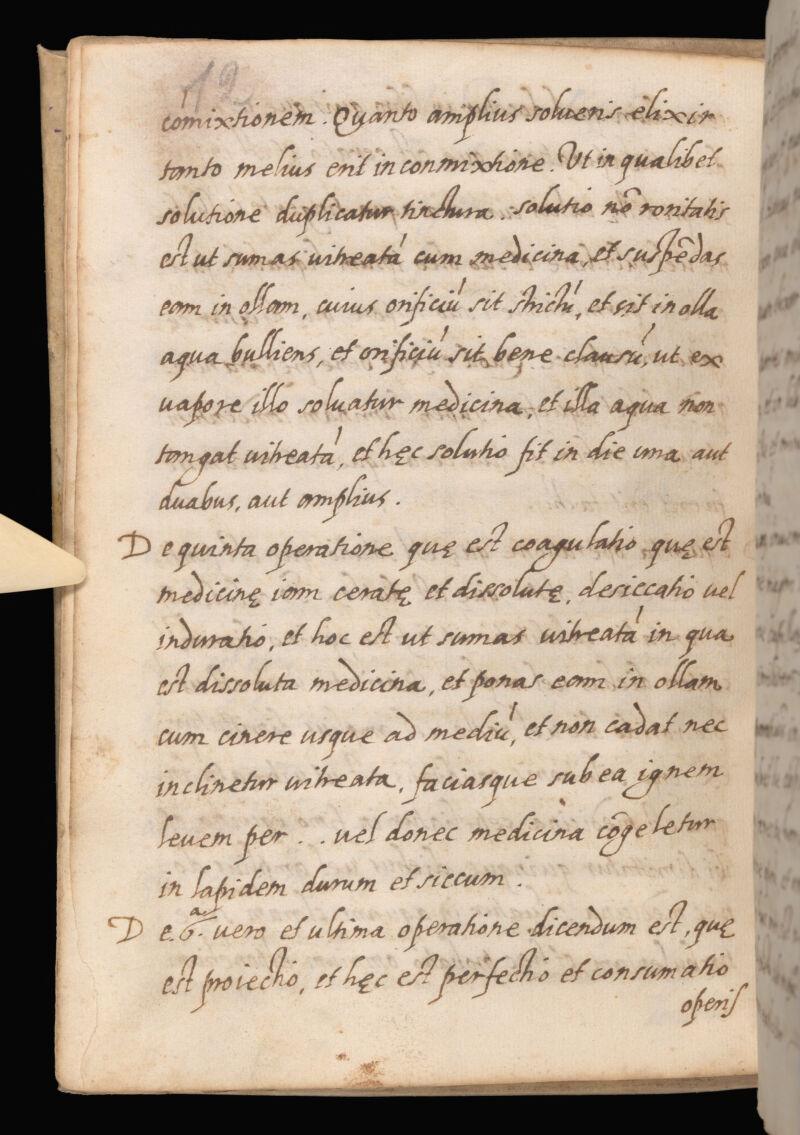 12
cómixtionem. Quanto amplius solueris elixir
tanto melius erit in conmixtione. Ut in qualibet
solutione duplicatur tinctura. solutio nō roritatis
est ut sumas uitreatá cum medicina, et suspēdas
eam in ollam, cuius orificiú sit strictú, et sit in olla
aqua bulliens, et orificiú sit bene clausú, ut ex
uapore illo soluatur medicina, et illa aqua non
tangat uitreatá, et hęc solutio fit in die una aut
duabus, aut amplius.
De quinta operatione quę est coagulatio, quę est
medicinę iam ceratę et dissolutę, desiccatio uel
induratio, et hoc est ut sumas uitreatá in qua
est dissoluta medicina, et ponas eam in ollam
cum cinere usque ad mediú, et non cadat nec
inclinetur uitreata, faciasque sub ea ignem
leuem per . . uel donec medicina cōgeletur
in lapidem durum et siccum.
De .6.ª uero et ultima operatione dicendum est, quę
est proiectio, et hęc est perfectio et consumatio
operis